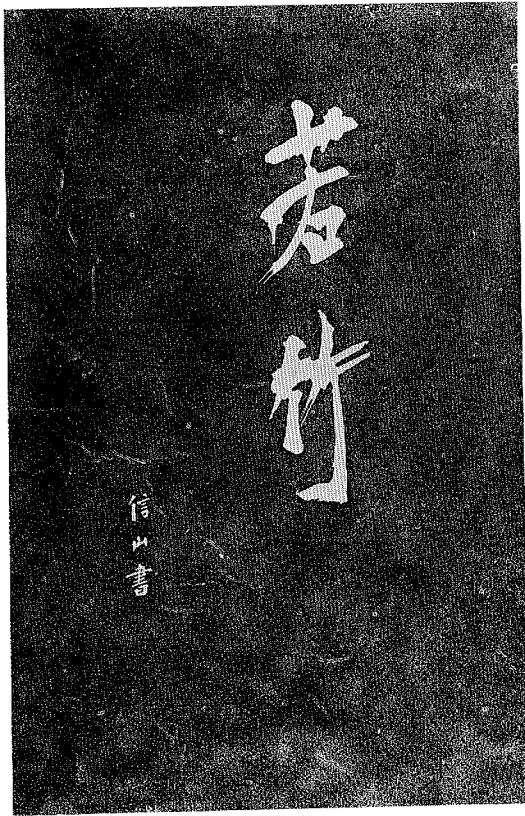 若竹
信山書